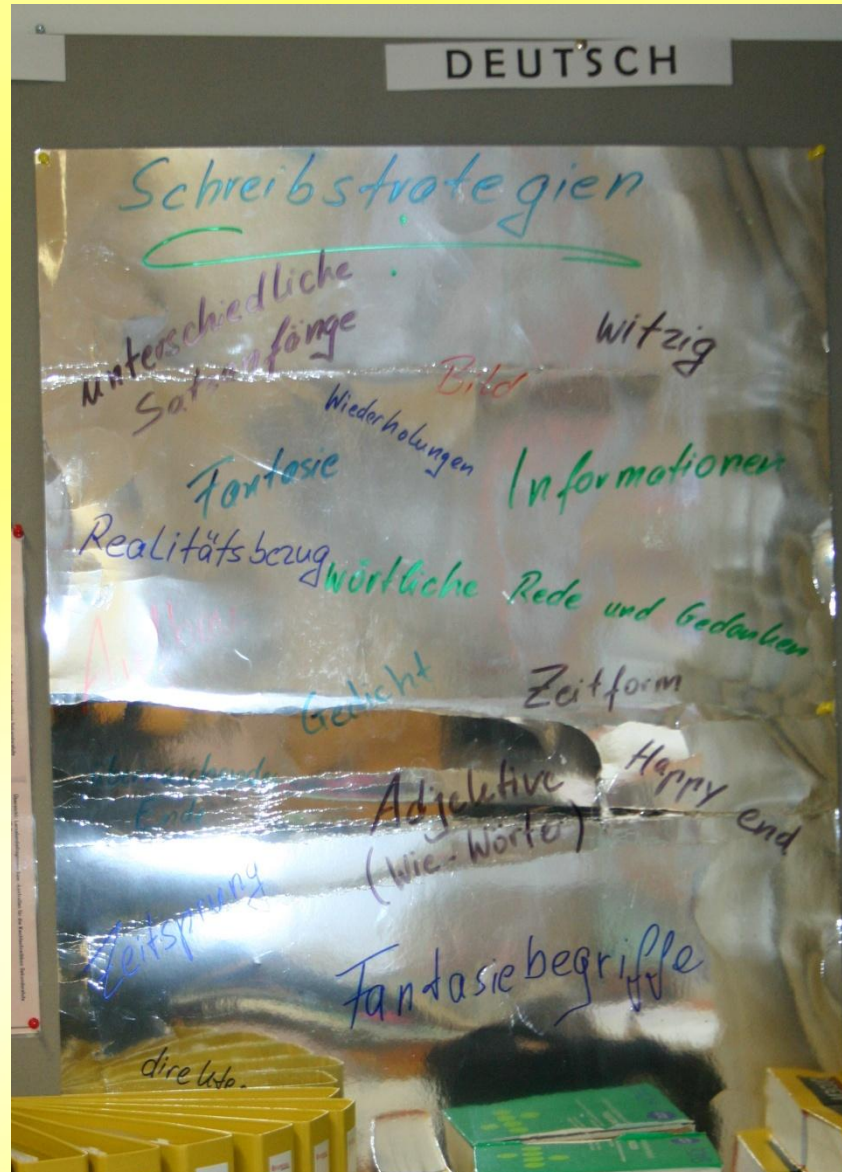 DEUTSCH
Schreibstrategien
unterschiedliche
Satzanfänge
witzig
Bild
Wiederholungen
Fantasie
Informationen
Realitätsbezug
wörtliche Rede und Gedanken
Gedicht
Zeitform
Ende
Happy end
Adjektive
(Wie-Wörter)
Zeitsprung
Fantasiebegriffe
direkte